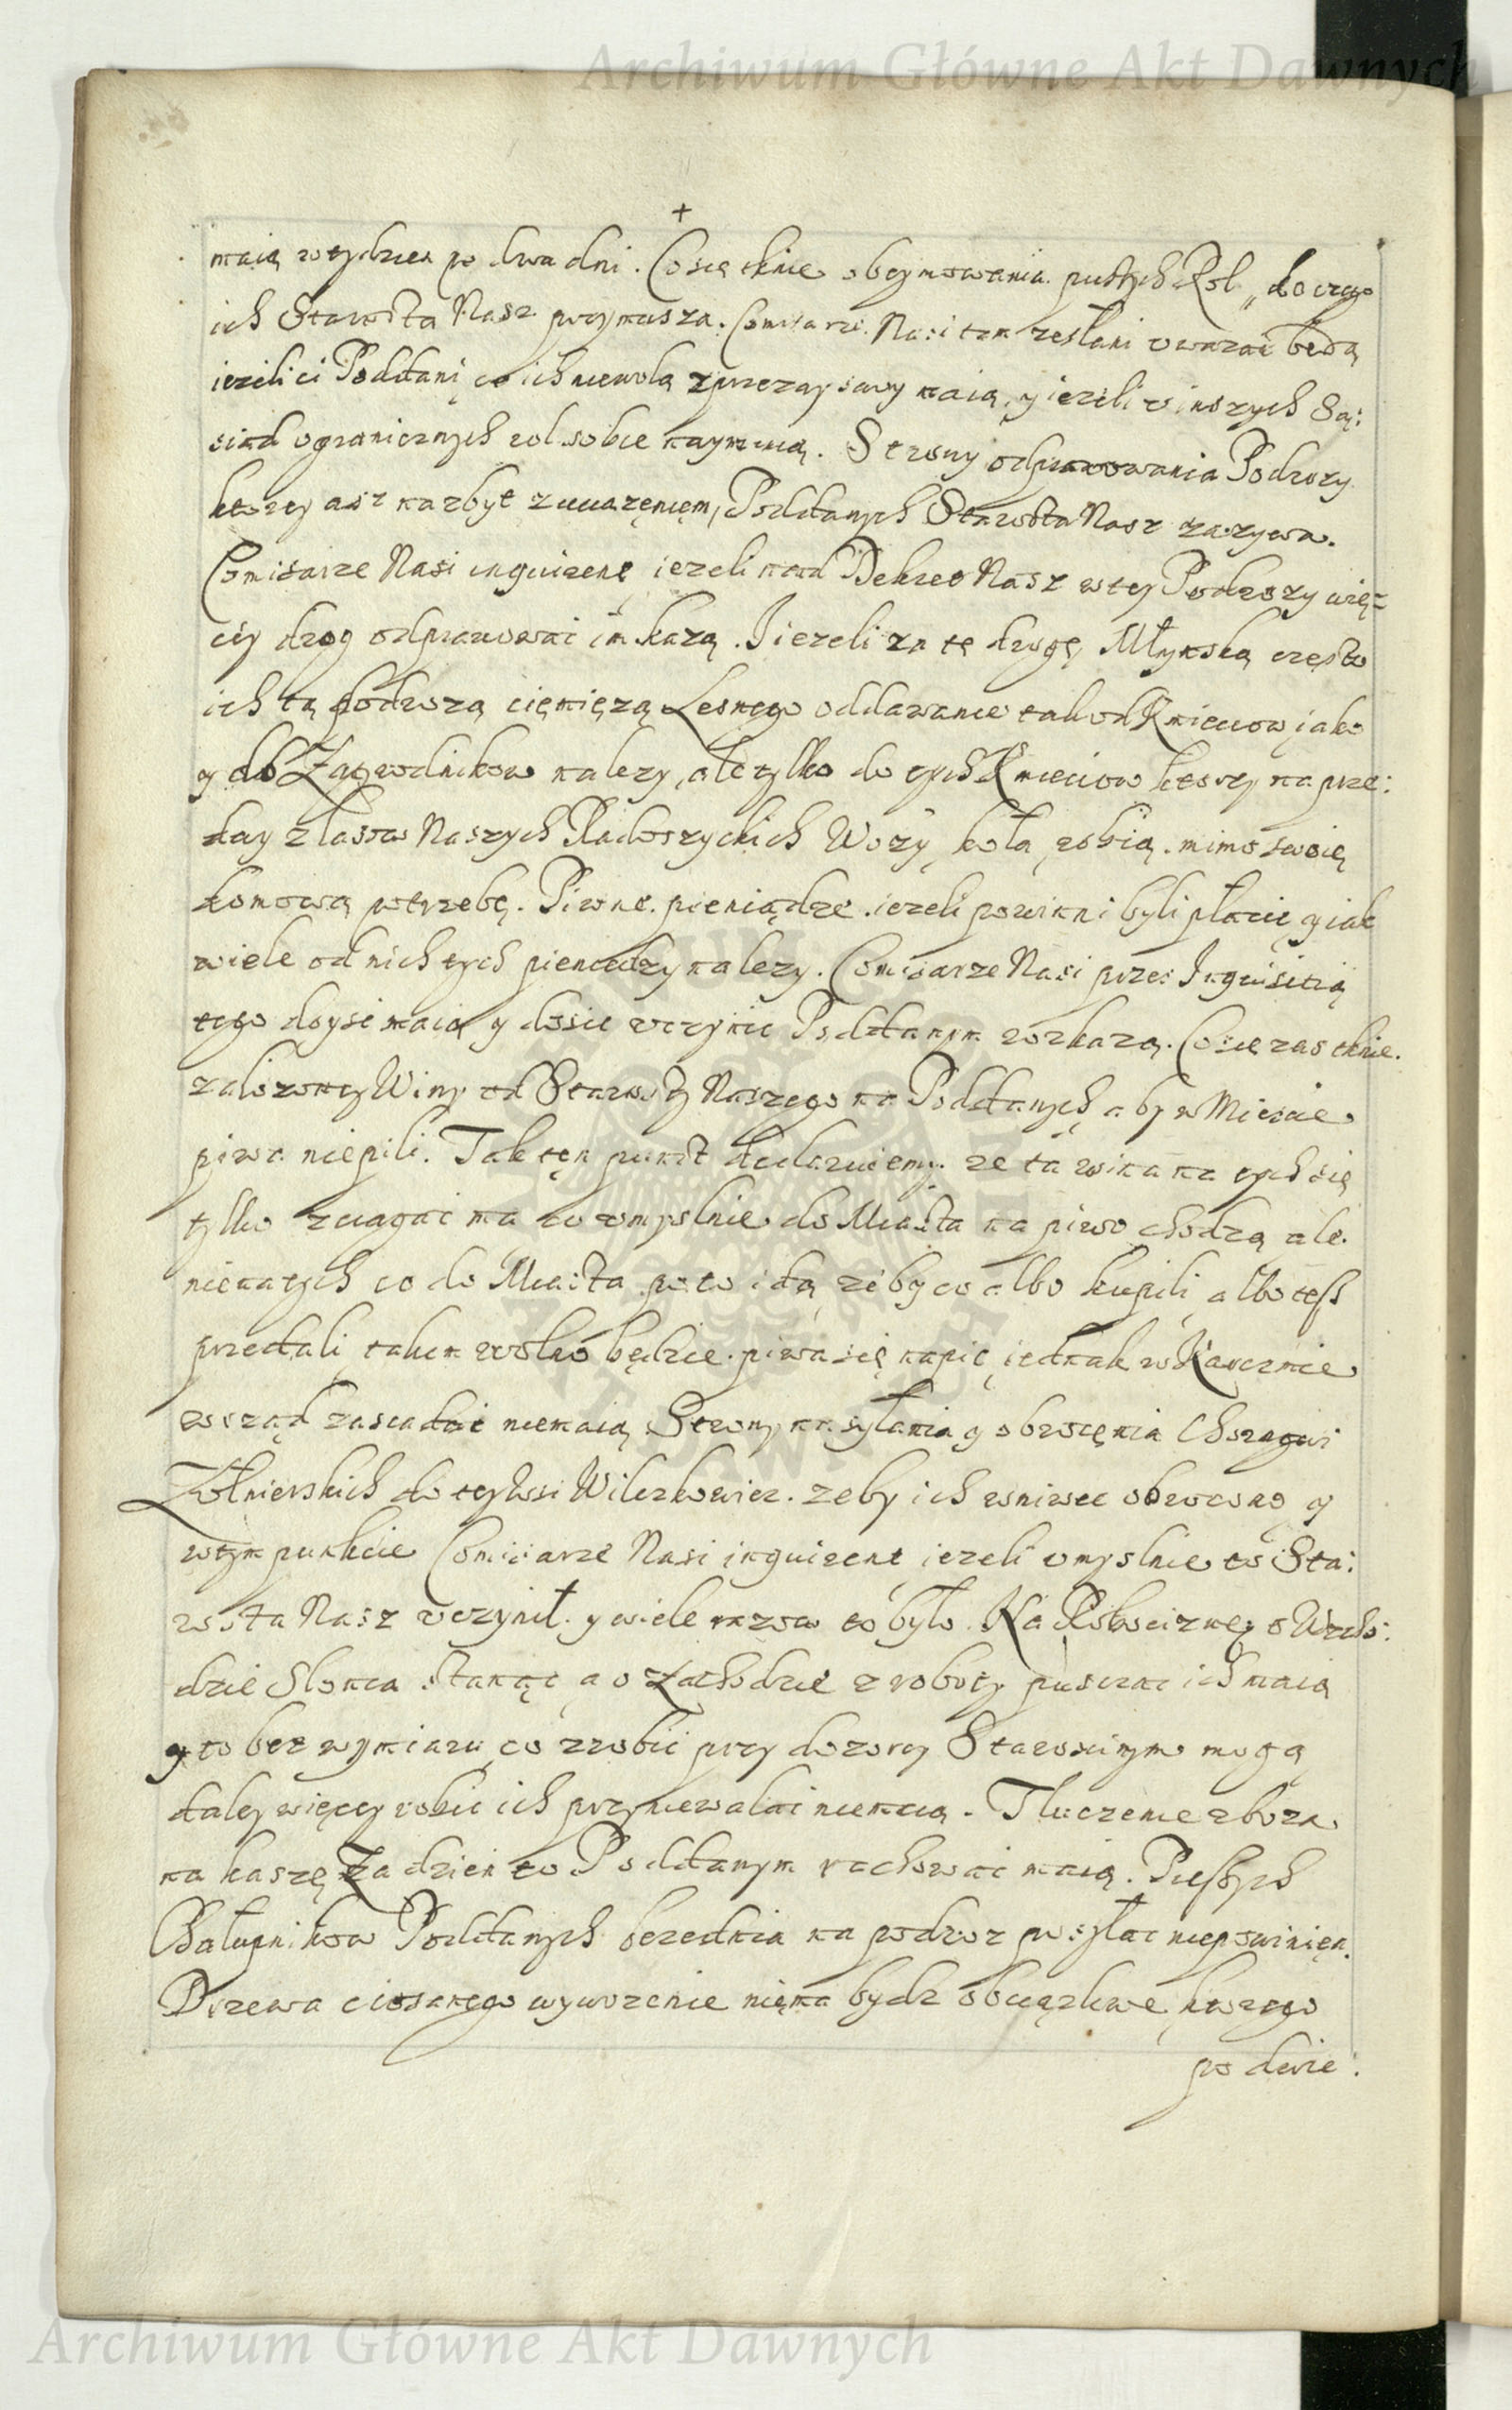 Archiwum Główne Akt Dawnych
+
maią w tydzien po dwa dni. Co się tknie obeymowania pustych Rol, do czego
ich Starosta Nasz przymusza. Comisarze Nasi tam zesłani uwazac będą
iezeli ci Poddani co ich niewolą zprzezay sowy maią, y iezeli u inszych Są:
siad ogranicznych rol sobie naymuią. Strony odprawowania Podrozy
ktorey asz nazbyt z uciązęnięm Poddanych Starosta Nasz zazywa.
Comisarze Nasi inquirent iezeli nad Dekret Nasz w tey Podrozy wię=
cey drog odprawowac im kazą. J iezeli za tę drogę Młynską często
ich tą podrozą cięmięzą Lesnego oddawanie tak od Kmieciow jako
y od Zagrodnikow nalezy, ale tylko do tych Kmieciow ktorzy na prze:
day z lasow Naszych Radoszyckich Wozy, koła robią. mimo swoię
domową potrzebę. Piwne pieniądze iezeli powinni byli płacic y iak
wiele od nich tych pieniedzy nalezy. Comisarze Nasi przez Inquisitią
tego doysc maią y dosic uczynic Poddanym rozkazą. Co się zas tknie
załozoney Winy od Starosty Naszego na Poddanych, aby w Miescie
piwa niepili. Tak tęn punkt declaruiemy. ze ta wina na tych się
tylko zciągac ma co umyslnie do Miasta na piwo chodzą ale
nie na tych co do Miasta po to idą, zeby co albo kupili, albo tesz
przedali, takim wolno będzie piwa się napic, iednak w Karczmie
wsząd zasiadac niemaią Strony nasyłania y obrocęnia Chorągwi
Zołnierskich do tey Wsi Wilczkowic. zeby ich wniwec obrocono y
w tym punkcie Comisarze Nasi inquirent iezeli umyslnie to Sta:
rosta Nasz uczynił. y wiele razow to było. Na Robociznę o Wscho:
dzie Slonca stanąc, a o Zachodzie z roboty puszczac ich maią
y to bez wymiaru, co zrobic przy dozorcy Staroscinym mogą
daley więcey robic ich przyniewalac niemaią. Tluczenie zboza
na kaszę Za dzien to Poddanym rachowac maią. Pieszych
Chałupnikow Poddanych bezednia na podroz posyłac niepowinięn.
Drzewa ciosanego wywozenie nięma bydz obciązliwe, ktorego
po dwie:
Archiwum Główne Akt Dawnych